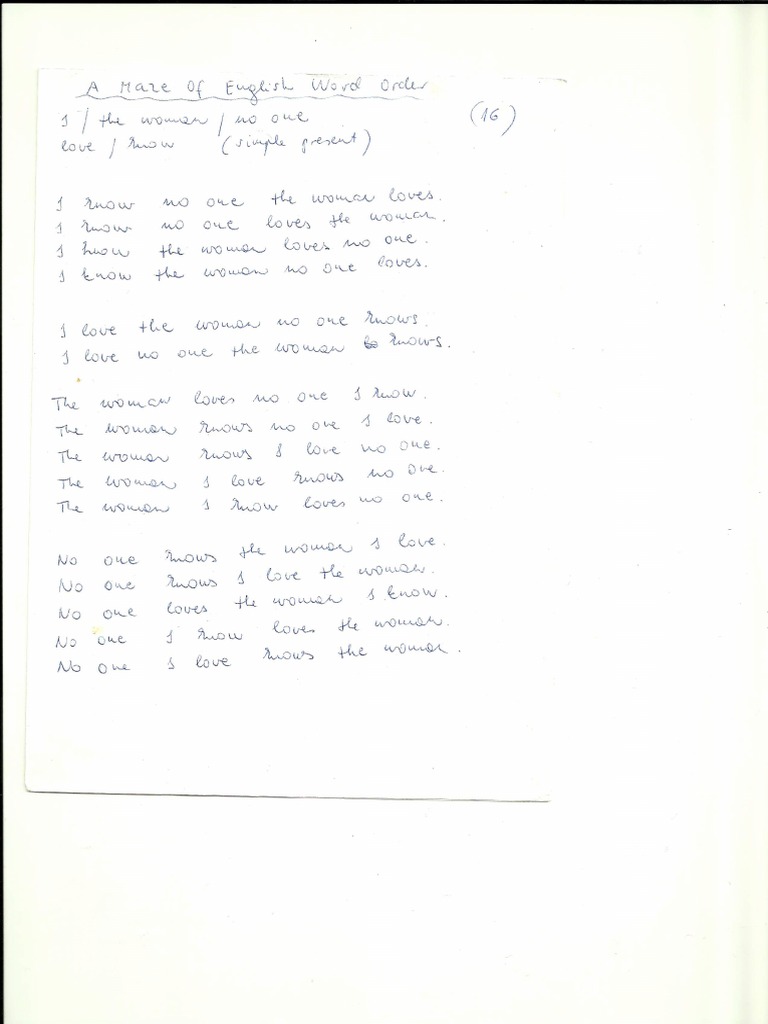 A Maze Of English Word Order
I / the woman / no one (16)
love / know (simple present)
I know no one the woman loves.
I know no one loves the woman.
I know the woman loves no one.
I know the woman no one loves.
I love the woman no one knows.
I love no one the woman knows.
The woman loves no one I know.
The woman knows no one I love.
The woman knows I love no one.
The woman I love knows no one.
The woman I know loves no one.
No one knows the woman I love.
No one knows I love the woman.
No one loves the woman I know.
No one I know loves the woman.
No one I love knows the woman.